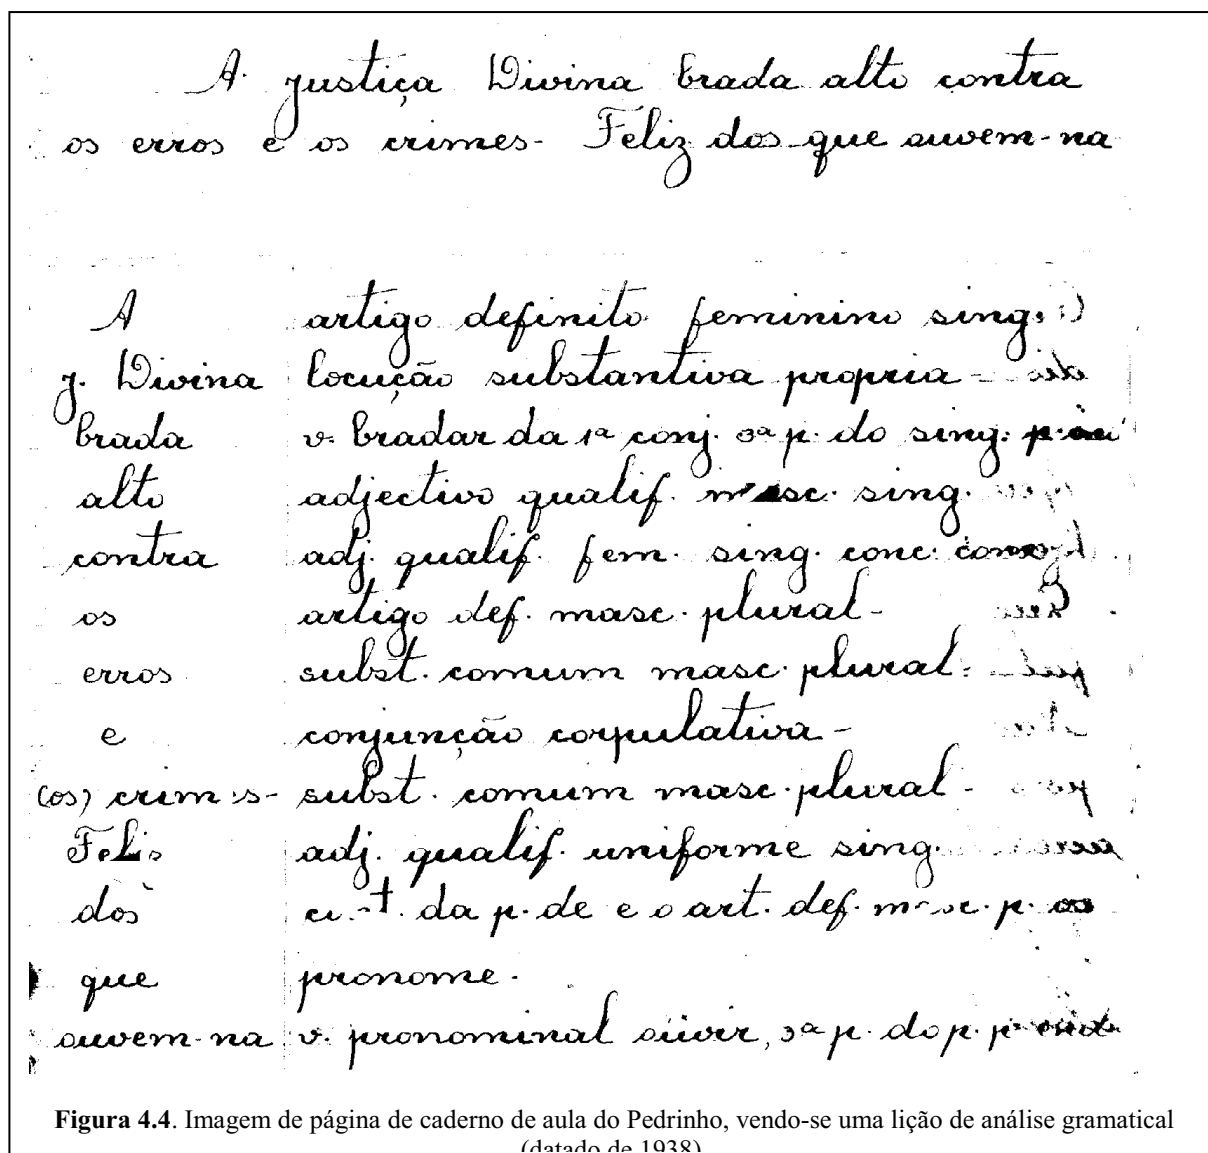 A justiça Divina brada alto contra
os erros e os crimes- Feliz dos que auvem-na
A artigo definito feminino sing.
J. Divina locução substantiva propria -
brada v. bradar da 1ª conj. 3ª p. do sing.
alto adjectivo qualif. masc. sing.
contra adj. qualif. fem. sing. conc.
os artigo def. masc. plural-
erros subst. comum masc. plural.
e conjunção corpulativa-
(os) crimes- subst. comum masc. plural-
Felis adj. qualif. uniforme sing.
dos da p. de e o art. def. masc. p. os
que pronome.
auvem-na v. pronominal oüvir, 3ª p. do p.
Figura 4.4. Imagem de página de caderno de aula do Pedrinho, vendo-se uma lição de análise gramatical
(datado de 1938)